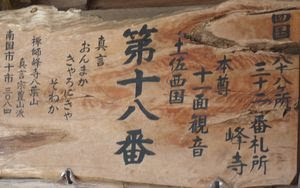 四国八十八ヶ所
三十二番札所
峰寺
本尊
十一面観音
土佐西国
第十八番
真言
おんまか
きゃろにきゃ
そわか
禅師峰寺八葉山
真言宗豊山派
南国市十市三〇八四